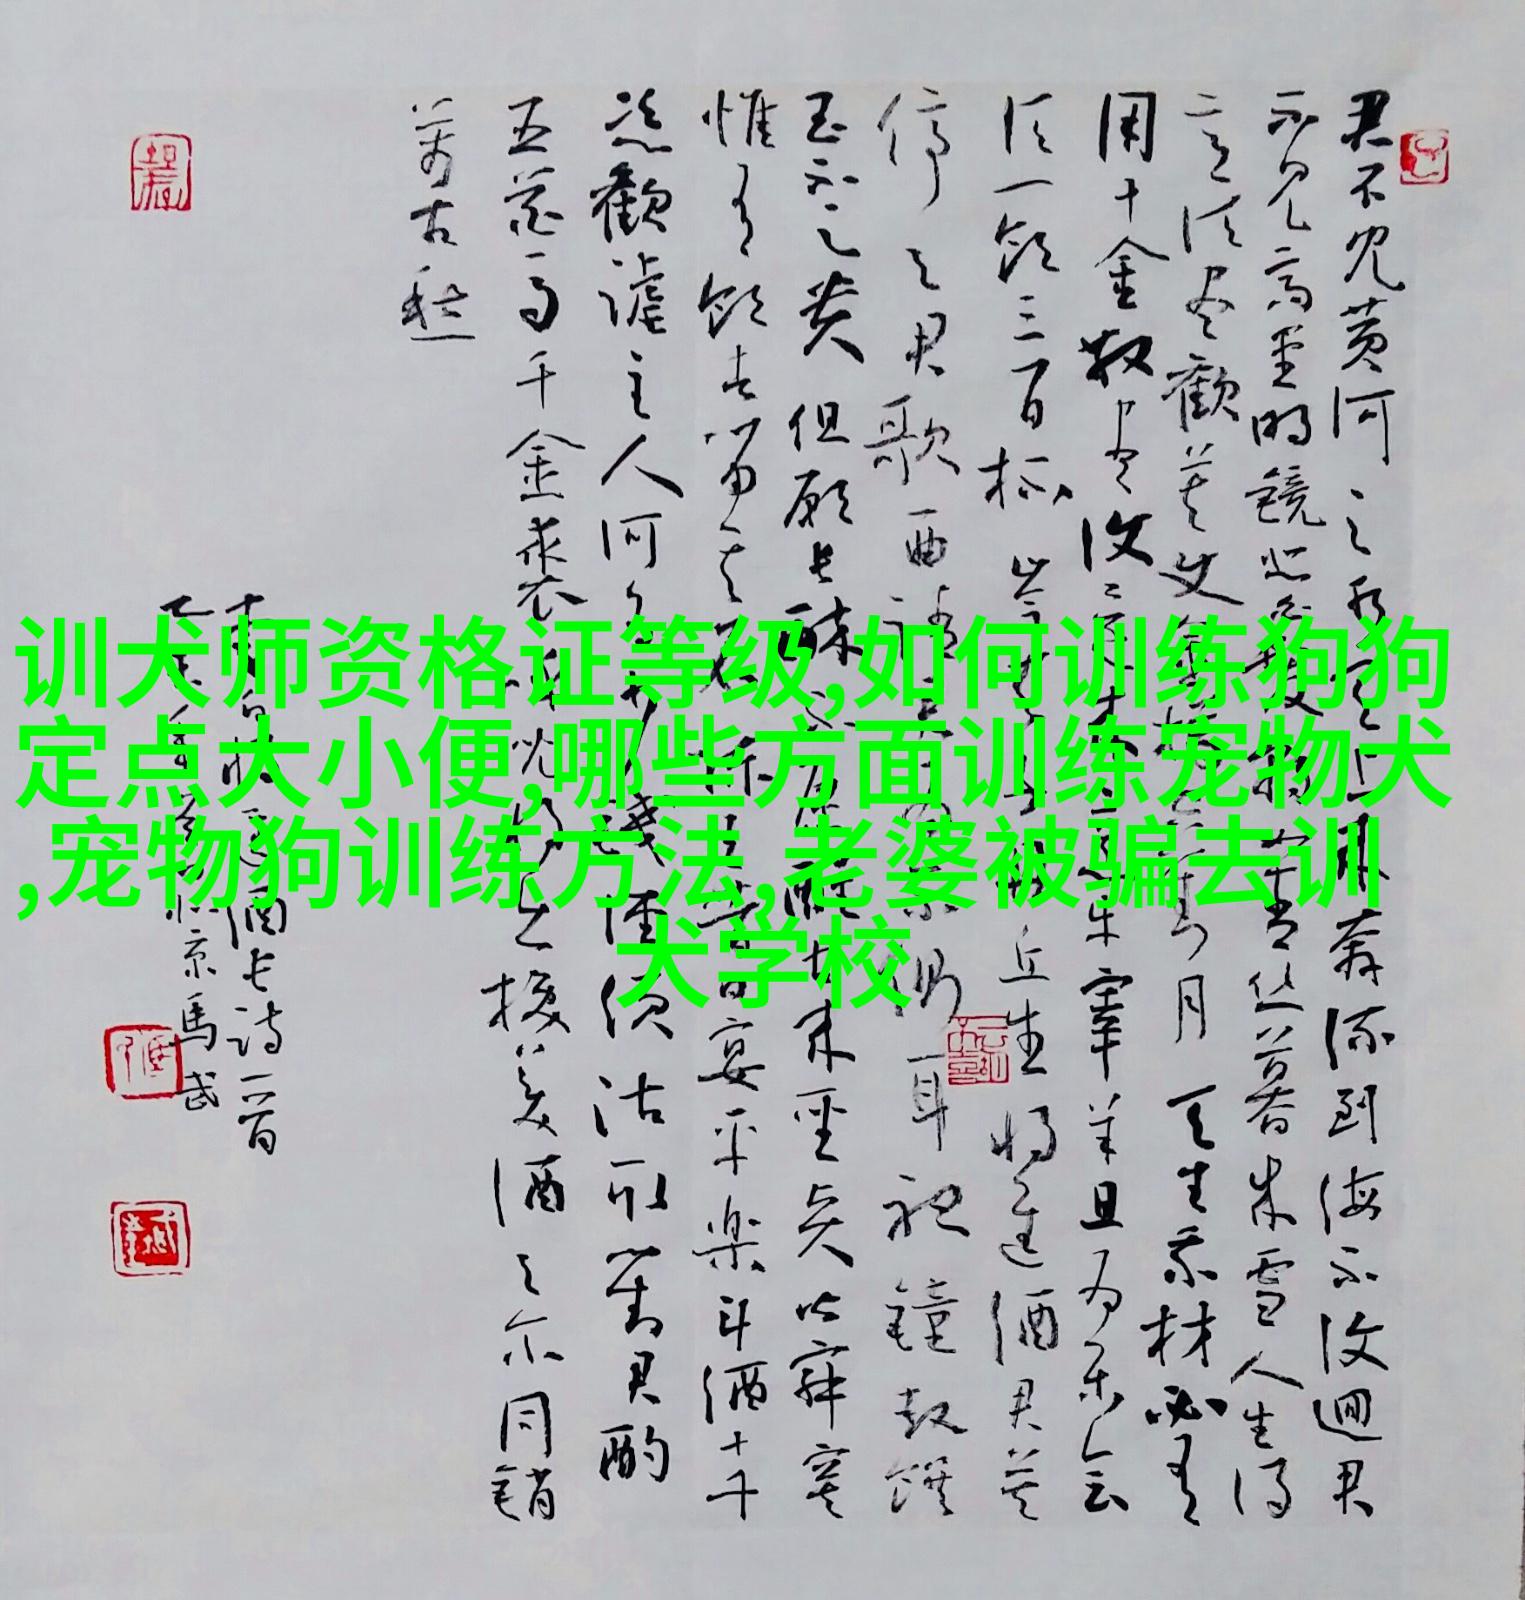 君不見黄河之水天上来奔流到海不復迴君
不見高堂明镜悲白髮朝如青丝暮成雪人生得
意须尽歡莫使金樽空对月天生我材必有
用千金散尽復还来烹牛宰羊且为乐会
须一饮三百杯岑夫子丹丘生将進酒君莫
停与君歌一曲请君为我倾耳聽鐘鼓饌
玉不足贵但願长醉不願醒古来聖贤皆寂寞
惟有饮者留其名陈王昔日宴平樂斗酒十千
恣歡謔主人何为言少錢徑须沽取對君酌
五花马千金裘呼儿将出换美酒与尔同銷
萬古愁
李白将進酒长诗一首
京馬武
训犬师资格证等级,如何训练狗狗
定点大小便,哪些方面训练宠物犬
,宠物狗训练方法,老婆被骗去训
犬学校